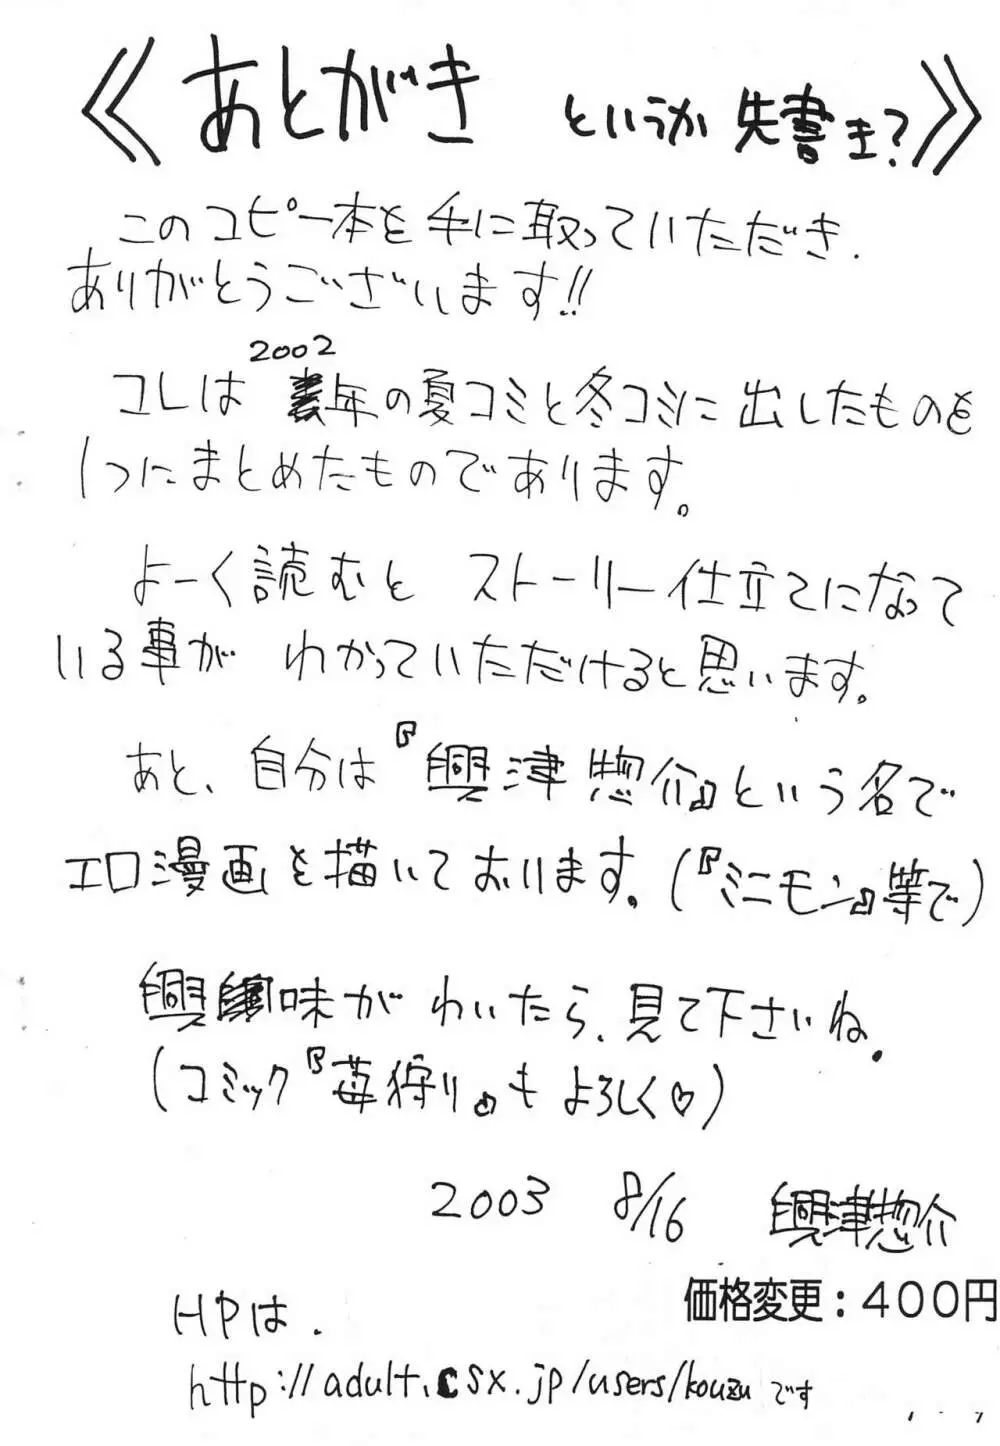 《あとがき というか 先書き?》
このコピー本を手に取っていただき、
ありがとうございます!!
2002
コレは 年の夏コミと冬コミに出したものを
1つにまとめたものであります。
よーく読むと ストーリー仕立てになって
いる事が わかっていただけると思います。
あと、自分は『興津惣介』という名で
エロ漫画を描いております。(『ミニモン』等で)
興味がわいたら、見て下さいね。
(コミック『苺狩り』もよろしく♡)
2003 8/16 興津惣介
価格変更：400円
HPは、
http://adult.csx.jp/users/kouzu です